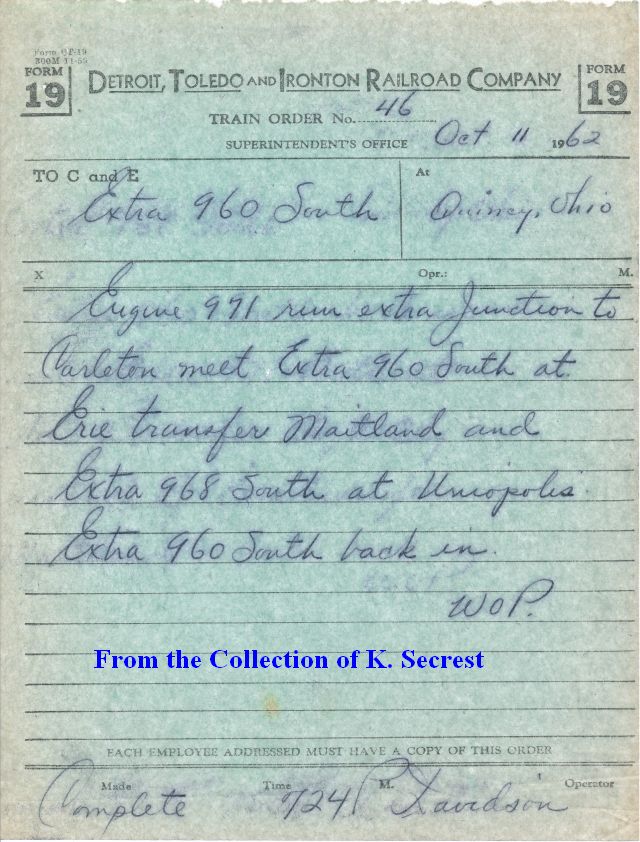 Form CT-19
300M 11-59
FORM 19
DETROIT, TOLEDO AND IRONTON RAILROAD COMPANY
FORM 19
TRAIN ORDER No. 46
SUPERINTENDENT'S OFFICE Oct 11 1962
TO C and E At
Extra 960 South Quincy, Ohio
X Opr.: M.
Engine 971 run extra Junction to
Carleton meet Extra 960 South at
Erie transfer Maitland and
Extra 968 South at Uniopolis.
Extra 960 South back in.
WOP.
From the Collection of K. Secrest
EACH EMPLOYEE ADDRESSED MUST HAVE A COPY OF THIS ORDER
Made Time M. Operator
Complete 724 P Davidson